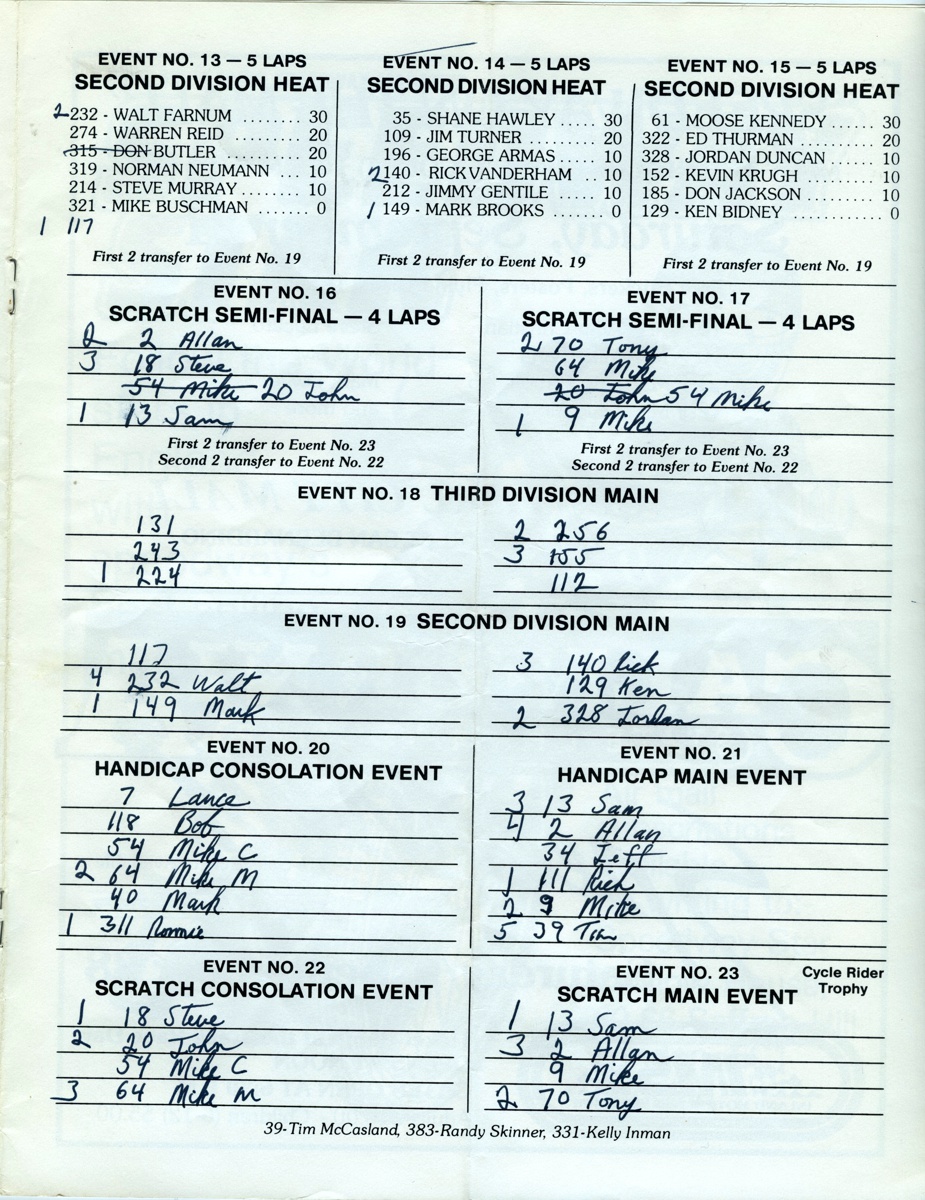 EVENT NO. 13 — 5 LAPS
SECOND DIVISION HEAT
2 232 - WALT FARNUM ....... 30
274 - WARREN REID ....... 20
315 - DON BUTLER .......... 20
319 - NORMAN NEUMANN ... 10
214 - STEVE MURRAY ......... 10
321 - MIKE BUSCHMAN ....... 0
1 117
First 2 transfer to Event No. 19
EVENT NO. 14 — 5 LAPS
SECOND DIVISION HEAT
35 - SHANE HAWLEY ..... 30
109 - JIM TURNER ........ 20
196 - GEORGE ARMAS ..... 10
2 140 - RICK VANDERHAM .. 10
212 - JIMMY GENTILE ..... 10
1 149 - MARK BROOKS ...... 0
First 2 transfer to Event No. 19
EVENT NO. 15 — 5 LAPS
SECOND DIVISION HEAT
61 - MOOSE KENNEDY ...... 30
322 - ED THURMAN ......... 20
328 - JORDAN DUNCAN ..... 10
152 - KEVIN KRUGH ........ 10
185 - DON JACKSON ........ 10
129 - KEN BIDNEY .......... 0
First 2 transfer to Event No. 19
EVENT NO. 16
SCRATCH SEMI-FINAL — 4 LAPS
2 2 Allan
3 18 Steve
54 Mike 20 John
1 13 Sam
First 2 transfer to Event No. 23
Second 2 transfer to Event No. 22
EVENT NO. 17
SCRATCH SEMI-FINAL — 4 LAPS
2 70 Tony
64 Mike
20 John 54 Mike
1 9 Mike
First 2 transfer to Event No. 23
Second 2 transfer to Event No. 22
EVENT NO. 18 THIRD DIVISION MAIN
131
243
1 224
2 256
3 155
112
EVENT NO. 19 SECOND DIVISION MAIN
117
4 232 Walt
1 149 Mark
3 140 Rick
129 Ken
2 328 Jordan
EVENT NO. 20
HANDICAP CONSOLATION EVENT
7 Lance
118 Bob
54 Mike C
2 64 Mike M
40 Mark
1 311 Ronnie
EVENT NO. 21
HANDICAP MAIN EVENT
3 13 Sam
4 2 Allan
34 Jeff
1 111 Rich
2 9 Mike
5 39 Tim
EVENT NO. 22
SCRATCH CONSOLATION EVENT
1 18 Steve
2 20 John
54 Mike C
3 64 Mike M
EVENT NO. 23
SCRATCH MAIN EVENT
Cycle Rider
Trophy
1 13 Sam
3 2 Allan
9 Mike
2 70 Tony
39-Tim McCasland, 383-Randy Skinner, 331-Kelly Inman